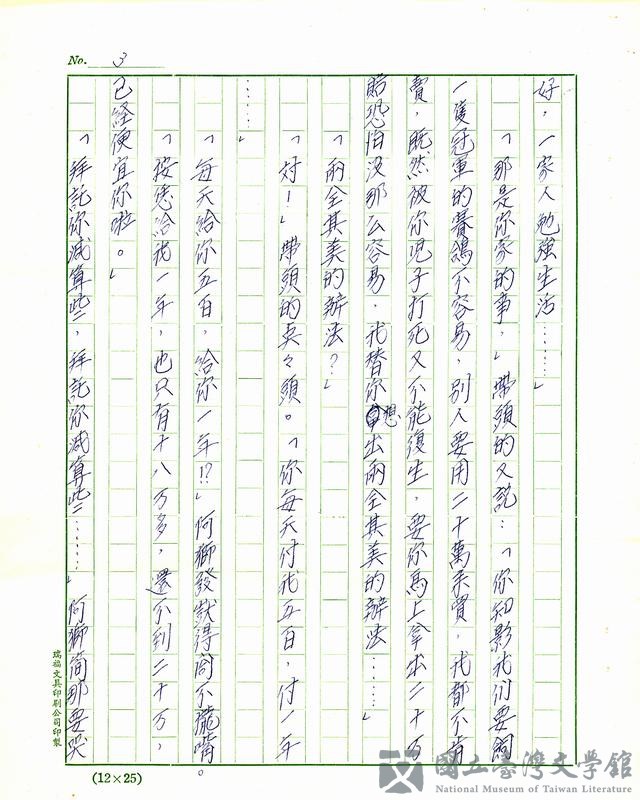 No. 3
好，一家人勉強生活……」
「那是你家的事，」帶頭的又說：「你知影我们要飼
一隻冠軍的賽鴿不容易，別人要用二十萬來買，我都不肯
賣，既然被你児子打死又不能復生，要你馬上拿出二十万
賠恐怕没那么容易，我替你想出兩全其美的辦法……」
「兩全其美的辦法？」
「対！」帶頭的奌々頭。「你每天付我五百，付一年
……」
「每天給你五百，給你一年!?」阿獅發獃得闔不攏嘴。
「按怹給我一年，也只有十八万多，還不到二十万，
已経便宜你啦。」
「拜託你減算些，拜託你減算些……」阿獅簡那要哭
瑞福文具印刷公司印製
(12×25)
國立臺灣文學館
National Museum of Taiwan Literature